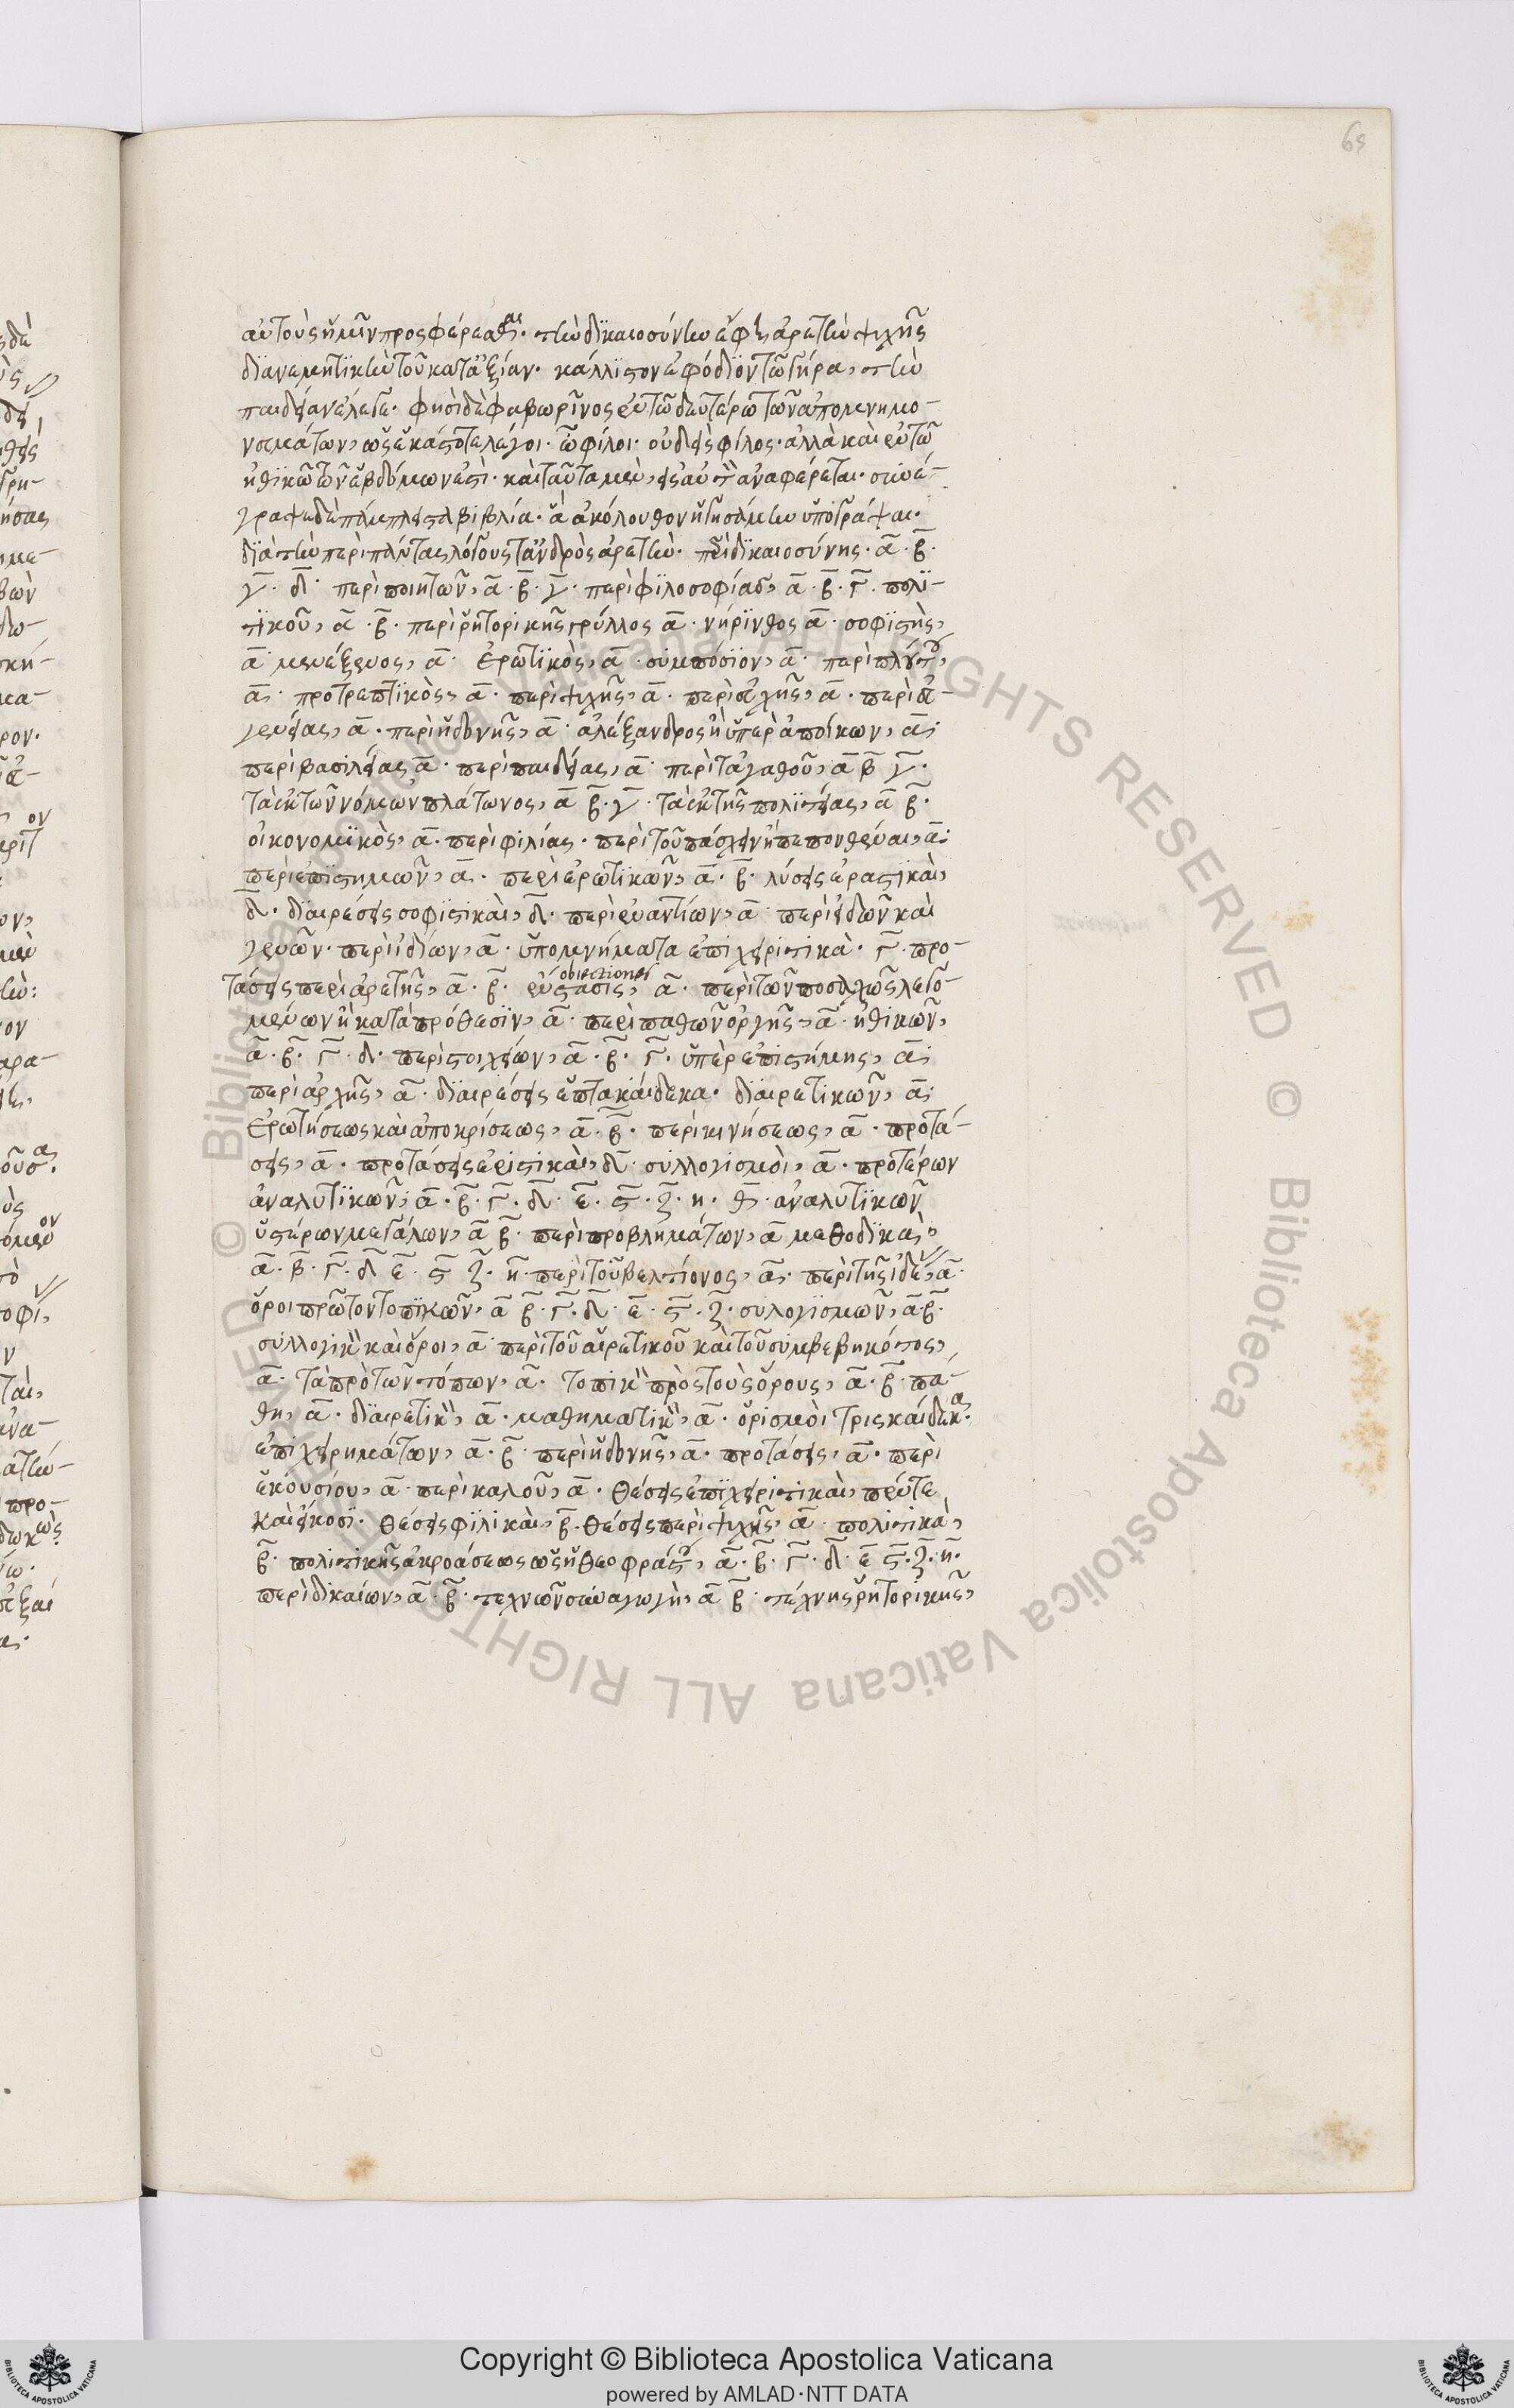 65
αὐτοὺς ἡμῖν προσφέρεσθαι. τὴν δικαιοσύνην ἔφη ἀρετὴν ψυχῆς
διανεμητικὴν τοῦ κατ' ἀξίαν. κάλλιστον ἐφόδιον τῷ γήρᾳ, τὴν
παιδείαν ἔλεγε. φησὶ δὲ φαβωρῖνος ἐν τῷ δευτέρῳ τῶν ἀπομνημο-
νευμάτων, ὡς ἑκάστοτε λέγοι. ὦ φίλοι. οὐδεὶς φίλος. ἀλλὰ καὶ ἐν τῷ
ἠθικῷ τῶν ἑβδόμων ἐστὶ. καὶ ταῦτα μὲν εἰς αὐτὸν ἀναφέρεται. συνέ-
γραψε δὲ πάμπλειστα βιβλία. ἃ ἀκόλουθον ἡγησάμην ὑπογράψαι.
διὰ τὴν περὶ πάντας λόγους τἀνδρὸς ἀρετὴν. περὶ δικαιοσύνης. α. β.
γ. δ. περὶ ποιητῶν, α. β. γ. περὶ φιλοσοφίας, α. β. γ. πολι-
τικοῦ, α. β. περὶ ῥητορικῆς γρύλλος α. νήρινθος α. σοφιστὴς,
α. μενέξενος, α. ἐρωτικὸς, α. συμπόσιον, α. περὶ πλούτου,
α. προτρεπτικὸς, α. περὶ ψυχῆς, α. περὶ εὐχῆς, α. περὶ εὐ-
γενείας, α. περὶ ἡδονῆς, α. ἀλέξανδρος ἢ ὑπὲρ ἀποίκων, α.
περὶ βασιλείας, α. περὶ παιδείας, α. περὶ τἀγαθοῦ, α β γ.
τὰ ἐκ τῶν νόμων πλάτωνος, α β. γ. τὰ ἐκ τῆς πολιτείας, α β.
οἰκονομικὸς, α. περὶ φιλίας. περὶ τοῦ πάσχειν ἢ πεπονθέναι, α.
περὶ ἐπιστημῶν, α. περὶ ἐρωτικῶν, α. β. λύσεις ἐριστικαὶ,
δ. διαιρέσεις σοφιστικαὶ, δ. περὶ ἐναντίων, α. περὶ εἰδῶν καὶ
γενῶν. περὶ ἰδίων, α. ὑπομνήματα ἐπιχειρητικὰ. γ. προ-
τάσεις περὶ ἀρετῆς, α. β. ἐνστάσεις, α. περὶ τῶν ποσαχῶς λεγο-
obiectiones
μένων ἢ κατὰ πρόθεσιν, α. περὶ παθῶν ὀργῆς, α. ἠθικῶν,
α. β. γ. δ. περὶ στοιχείων, α. β. γ. ὑπὲρ ἐπιστήμης, α.
περὶ ἀρχῆς, α. διαιρέσεις ἑπτακαίδεκα. διαιρετικῶν, α.
ἐρωτήσεως καὶ ἀποκρίσεως, α. β. περὶ κινήσεως, α. προτά-
σεις, α. προτάσεις ἐριστικαὶ, δ. συλλογισμοὶ, α. προτέρων
ἀναλυτικῶν, α. β. γ. δ. ε. ς. ζ. η. θ. ἀναλυτικῶν
ὑστέρων μεγάλων, α β. περὶ προβλημάτων, α μεθοδικὰ,
α. β. γ. δ ε. ς ζ. η. περὶ τοῦ βελτίονος, α. περὶ τῆς ἰδέας, α.
ὅροι πρῶτον τοπικῶν, α β. γ. δ. ε. ς. ζ. συλογισμῶν, α. β.
συλλογικὸν καὶ ὅροι, α. περὶ τοῦ αἱρετικοῦ καὶ τοῦ συμβεβηκότος,
α. τὰ πρὸ τῶν τόπων, α. τοπικῶν πρὸς τοὺς ὅρους, α. β. πά-
θη, α. διαιρετικὸν, α. μαθηματικὸν, α. ὁρισμοὶ τρισκαίδεκα.
ἐπιχειρημάτων, α. β. περὶ ἡδονῆς, α. προτάσεις, α. περὶ
ἑκουσίου, α. περὶ καλοῦ, α. θέσεις ἐπιχειρητικαὶ, πέντε
καὶ εἴκοσι. θέσεις φιλικαὶ, β. θέσεις περὶ ψυχῆς, α. πολιτικὰ,
β. πολιτικῆς ἀκροάσεως ὡς ἡ θεοφράστου, α. β. γ. δ. ε ς. ζ. η.
περὶ δικαίων, α. β. τεχνῶν συναγωγὴ, α β. τέχνης ῥητορικῆς,
© Biblioteca Apostolica Vaticana ALL RIGHTS RESERVED © Biblioteca Apostolica Vaticana ALL RIGHTS RESERVED
Copyright © Biblioteca Apostolica Vaticana
powered by AMLAD·NTT DATA
BIBLIOTECA APOSTOLICA VATICANA
BIBLIOTECA APOSTOLICA VATICANA